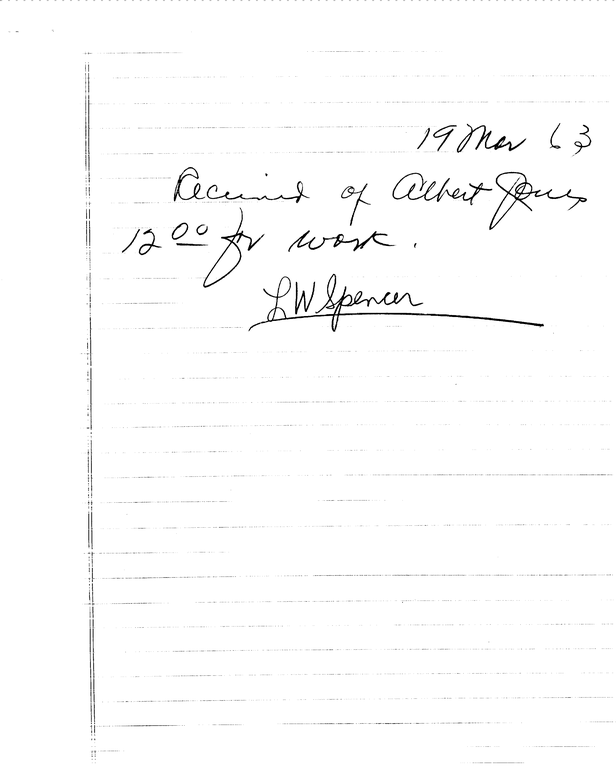 19 Mar 63
Received of Albert Jones
12 00 for work.
LW Spencer